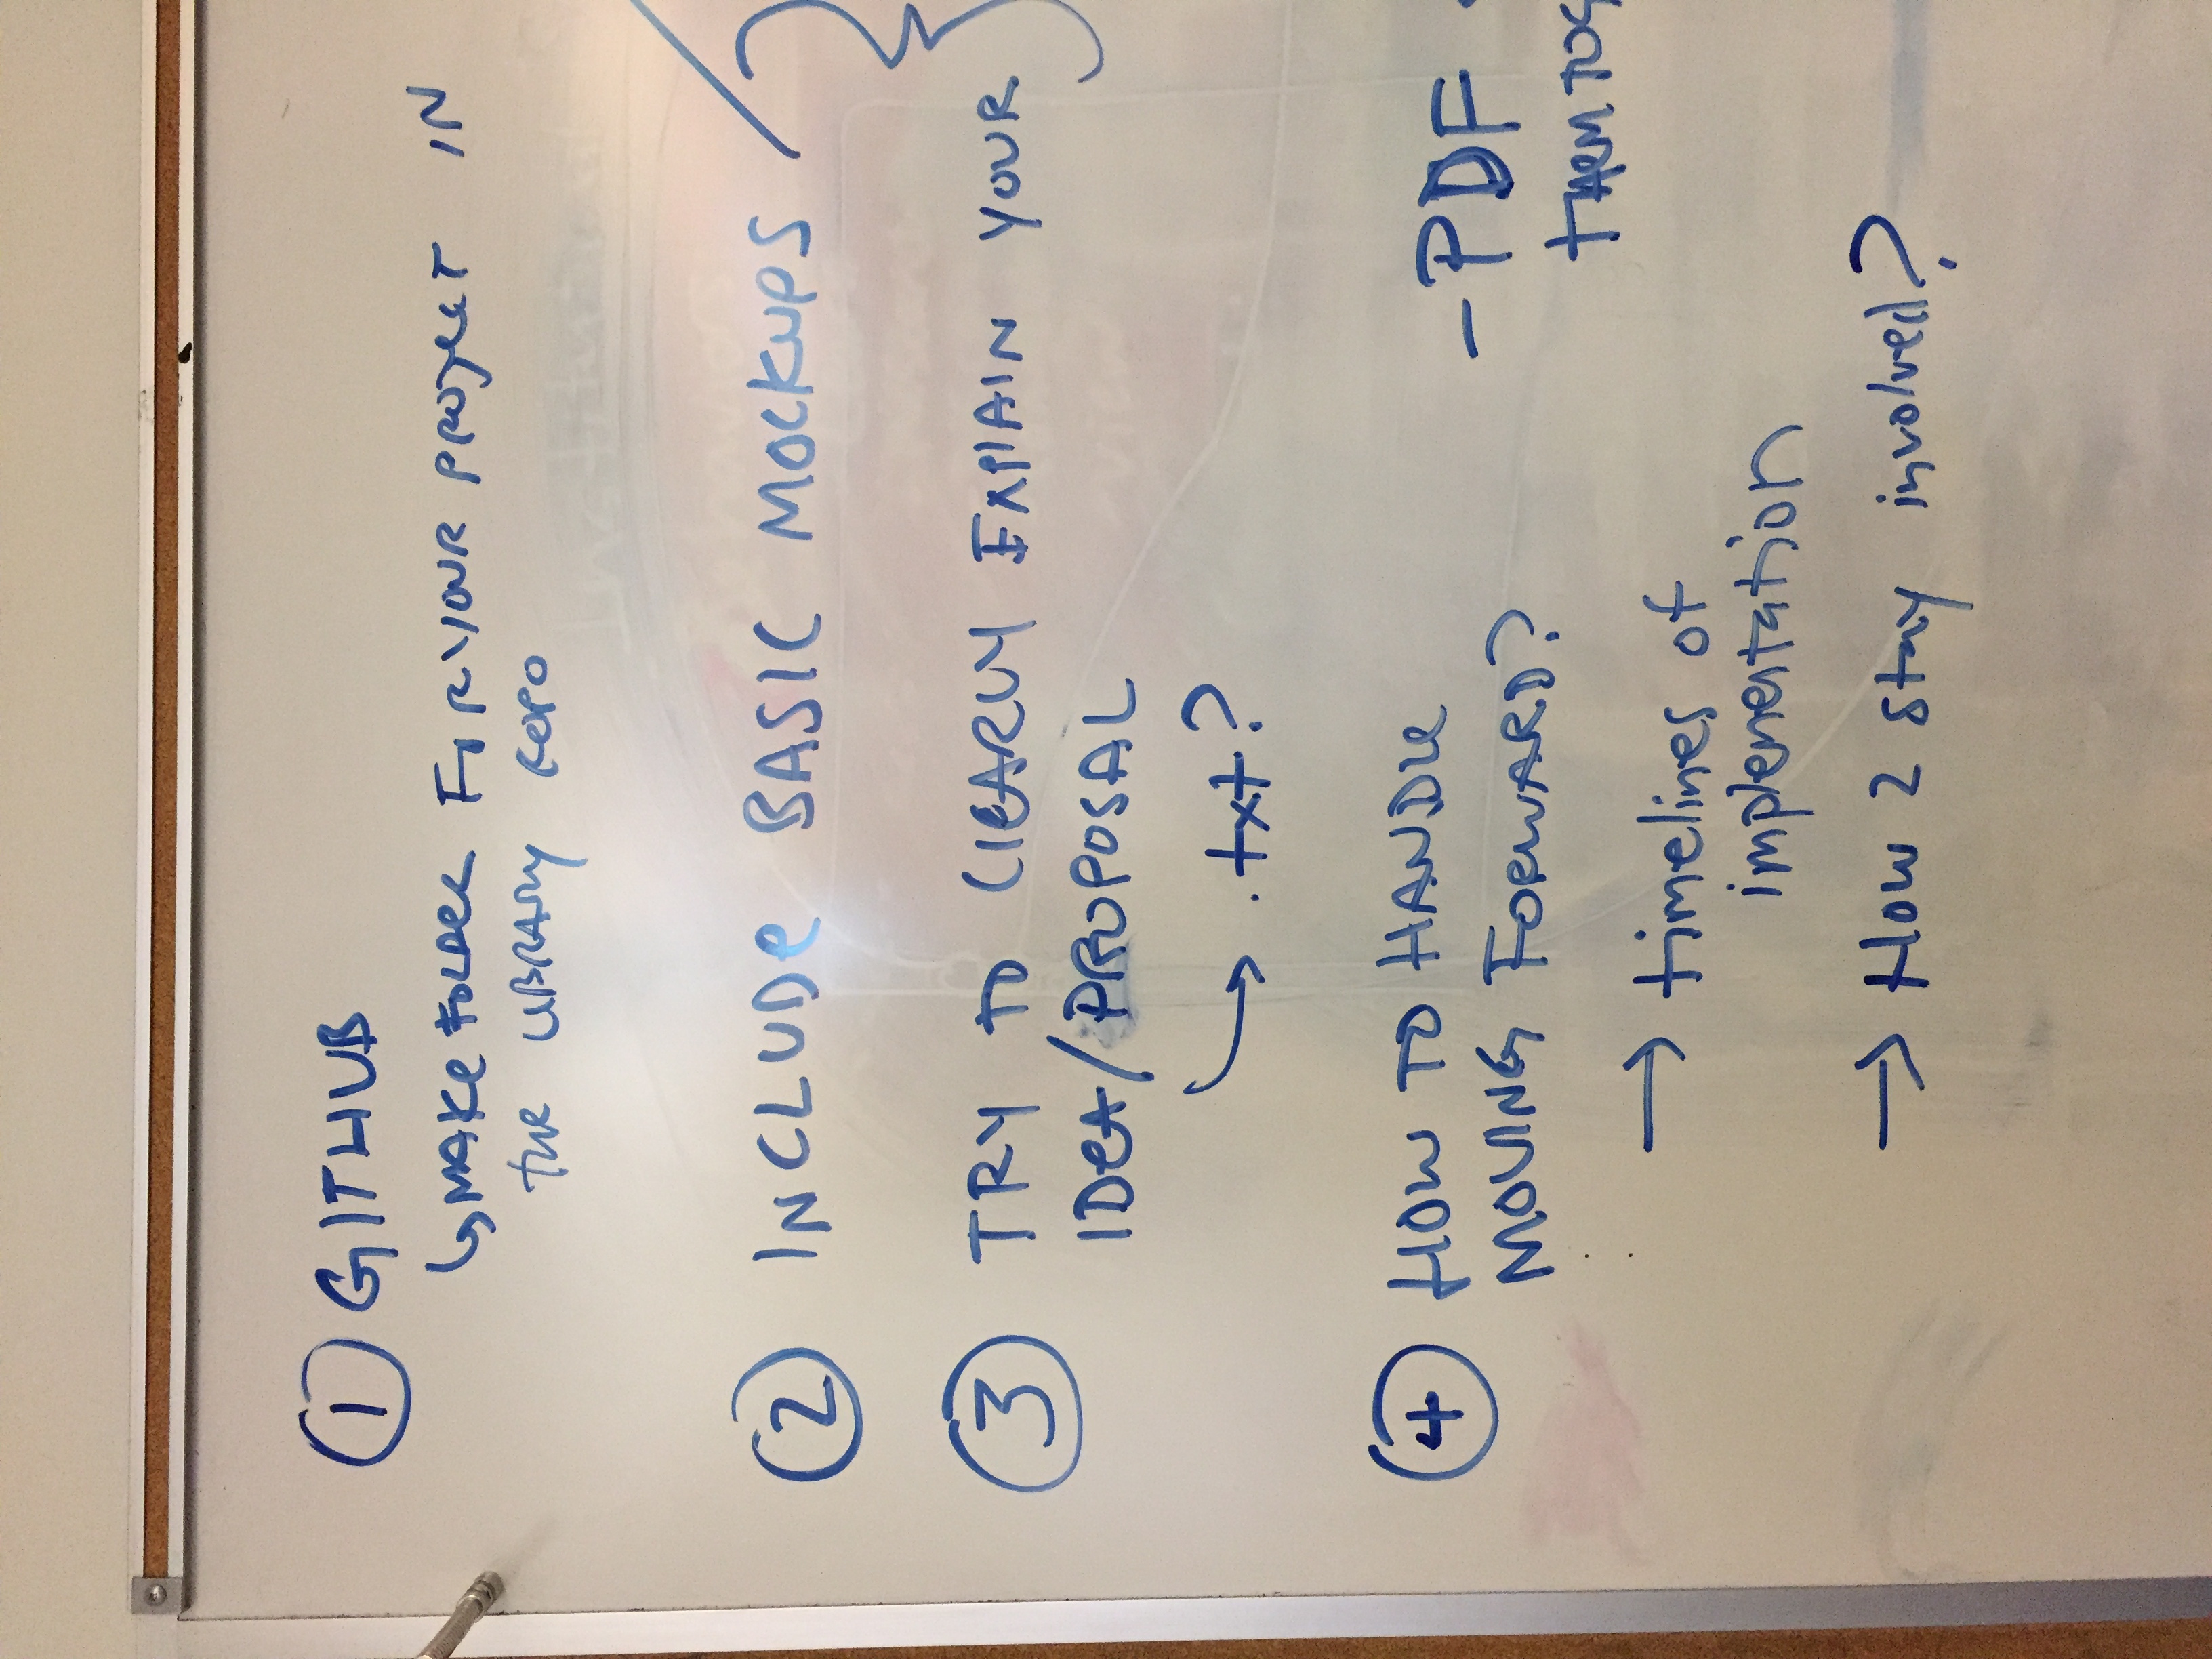 ① GITHUB
↳ MAKE FOLDER FOR YOUR PROJECT IN
THE LIBRARY REPO
② INCLUDE BASIC MOCKUPS
③ TRY TO CLEARLY EXPLAIN YOUR
IDEA/PROPOSAL
→ .txt?
④ HOW TO HANDLE
MOVING FORWARD?
→ timelines of
implementation
→ How 2 stay involved?
- PDF
THEM TOG